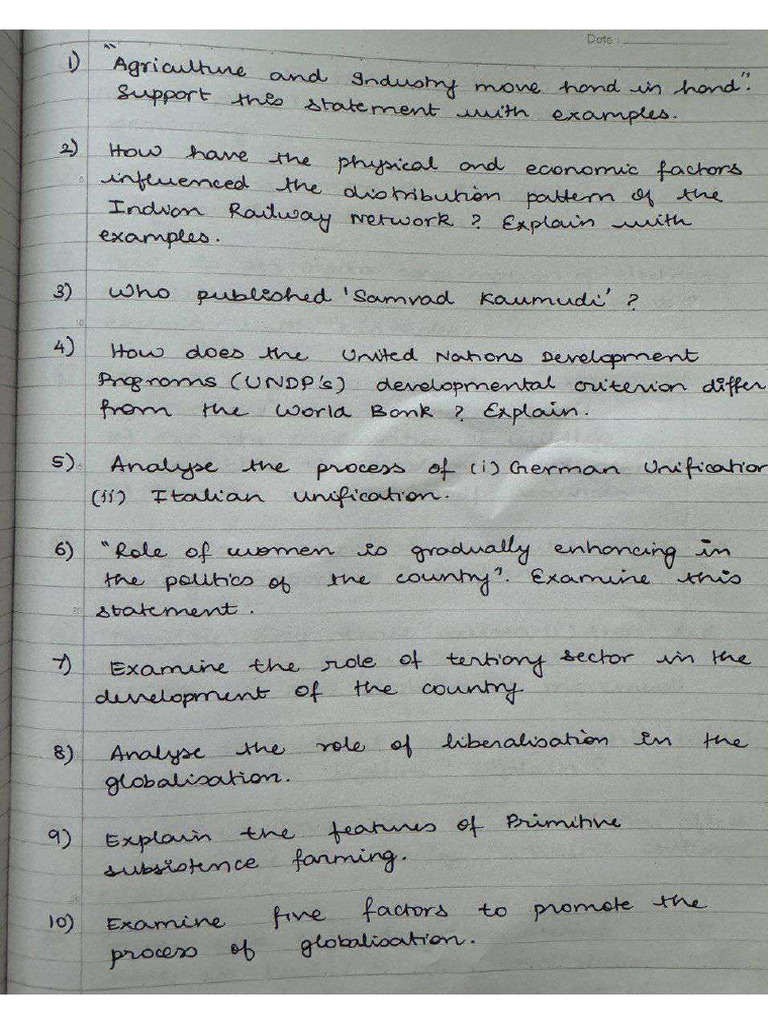 Date:
1) "Agriculture and Industry move hand in hand".
Support this statement with examples.
2) How have the physical and economic factors
influenced the distribution pattern of the
Indian Railway Network? Explain with
examples.
3) Who published 'Samvad Kaumudi'?
4) How does the United Nations Development
Programs (UNDP's) developmental criterion differ
from the World Bank? Explain.
5) Analyse the process of (i) German Unification
(ii) Italian unification.
6) "Role of women is gradually enhancing in
the politics of the country". Examine this
statement.
7) Examine the role of tertiary sector in the
development of the country
8) Analyse the role of liberalisation in the
globalisation.
9) Explain the features of Primitive
subsistence farming.
10) Examine five factors to promote the
process of globalisation.